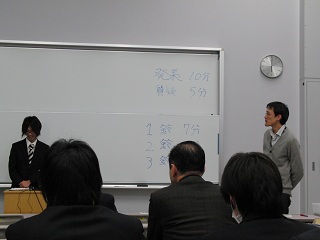 発表 10分
質疑 5分
1鈴 7分
2鈴
3鈴